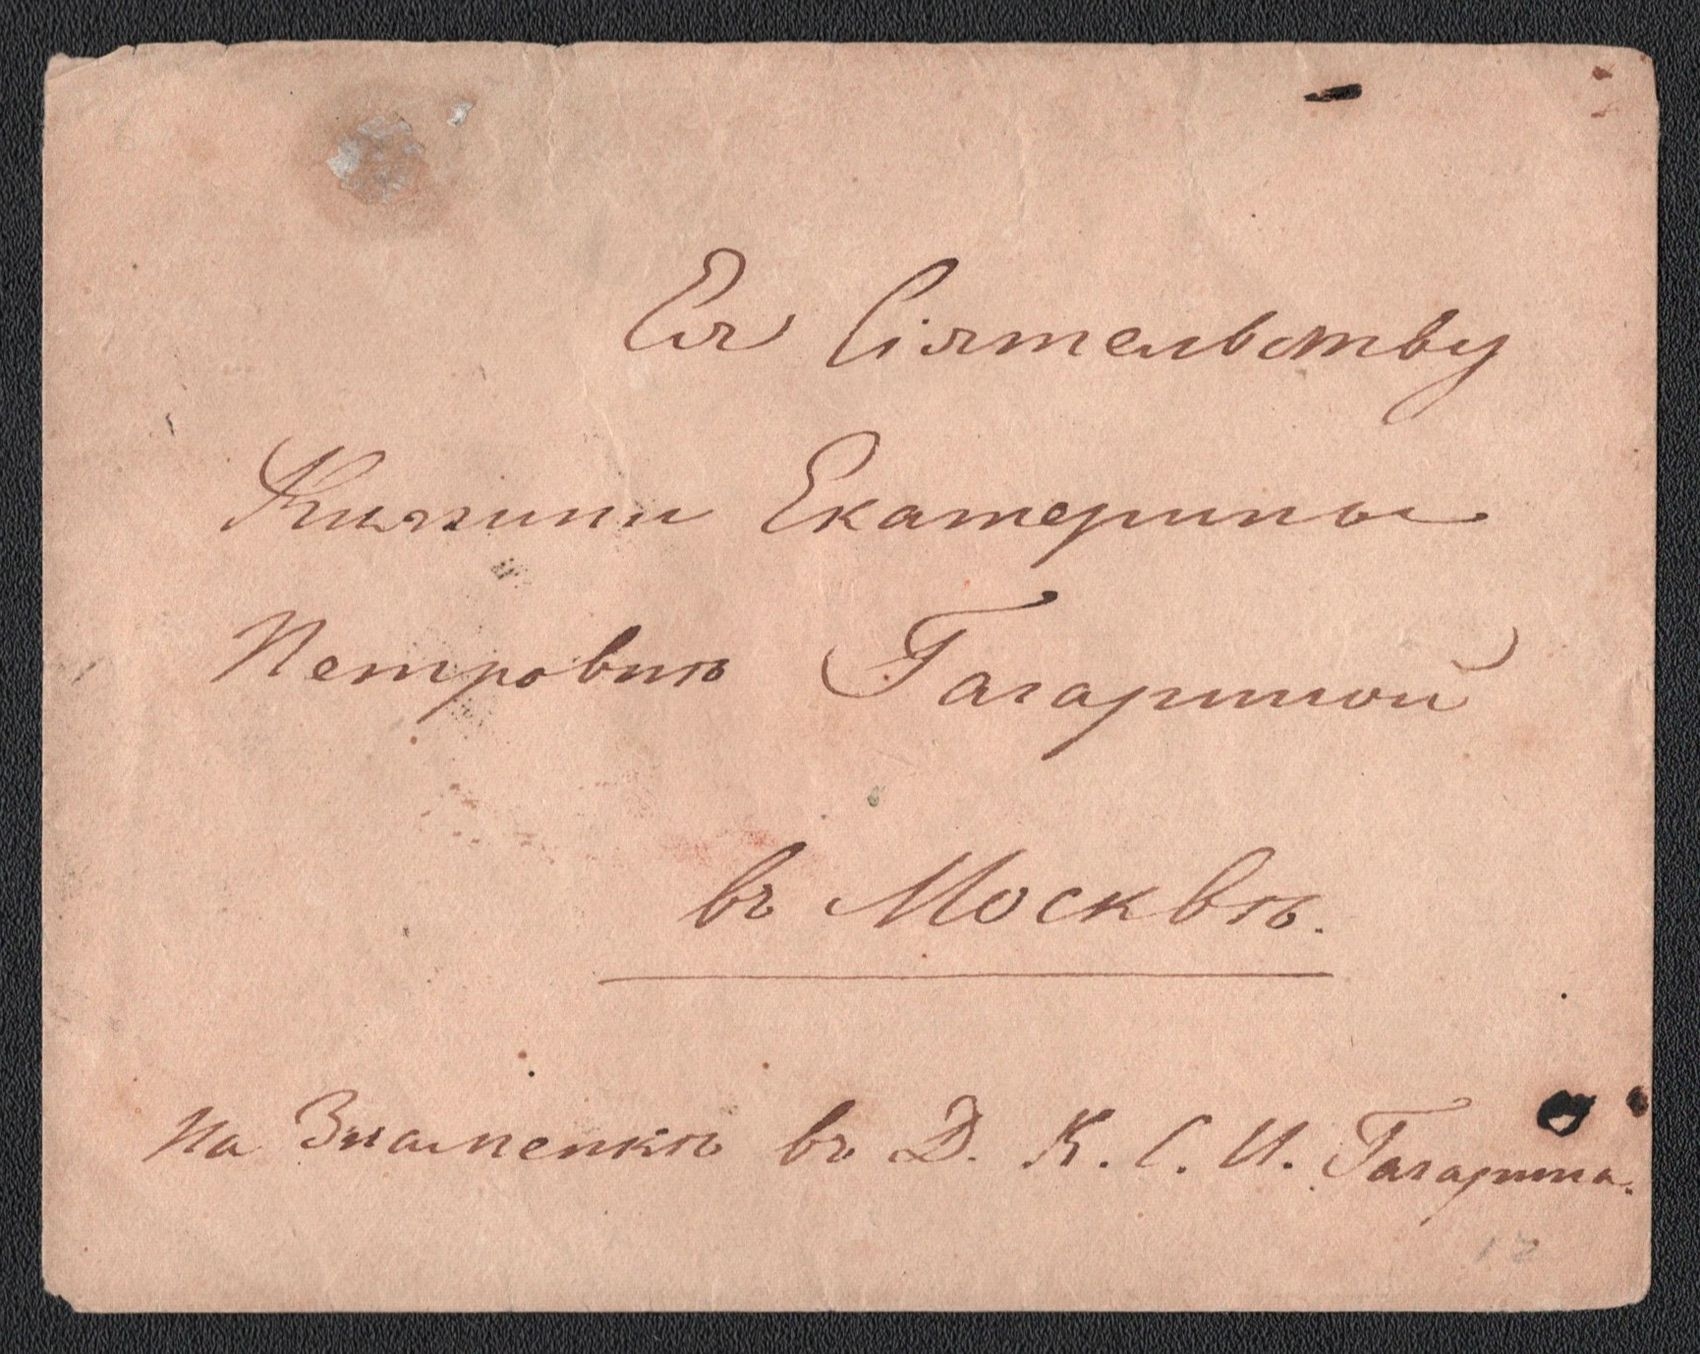 Ея Сіятельству
Княгини Екатерины
Петровнѣ Гагариной
въ Москвѣ.
На Знаменкѣ въ Д. К. С. И. Гагарина.